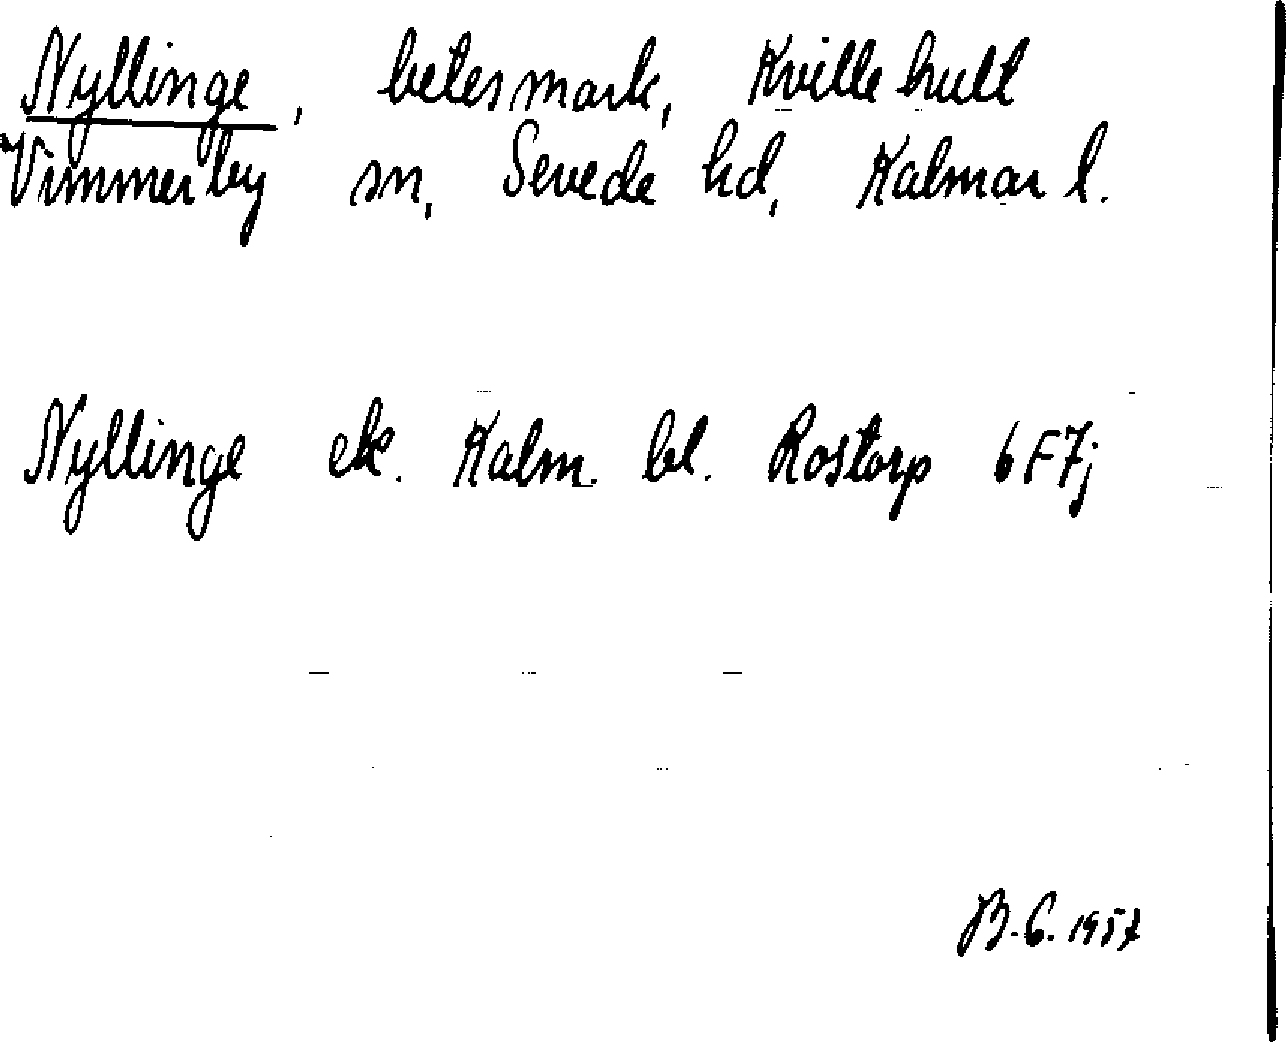 Nyllinge, betesmark, Kvillehult
Vimmerby sn, Sevede hd, Kalmar l.
Nyllinge ek. Kalm. bl. Rostorp 6F7j
B.C. 1957